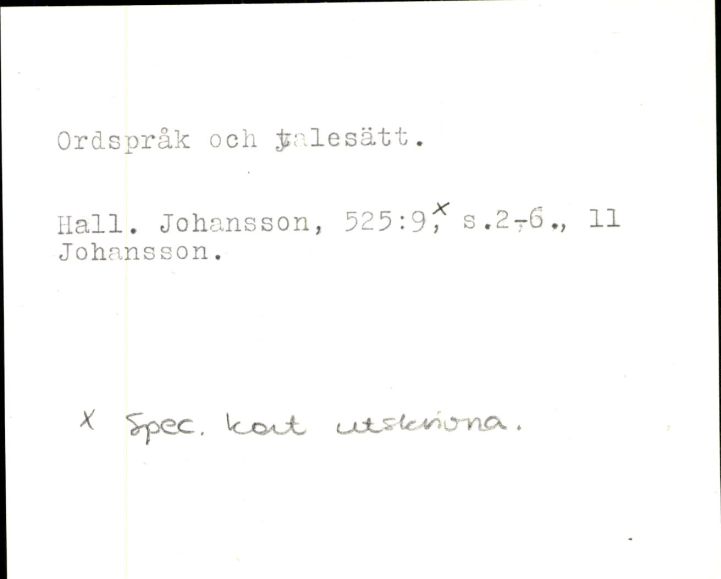 Ordspråk och talesätt.
Hall. Johansson, 525:9,x s.2-6., 11
Johansson.
x Spec. kort utskrivna.